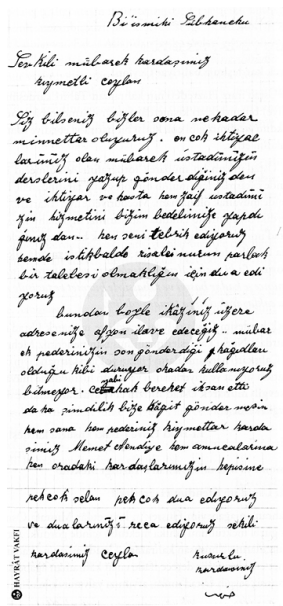 Biismiki Sübhanehu
Sevkili mübarek kardaşımız
kıymetli ceylan
Siz bilseniz bizler sona nekadar
minnettar oluyuruz. en cok ihtiyac
larımız olan mübarek üstadımızın
derslerini yazup gönderdiğiniz den
ve ihtiyar ve hasta hem zaif üstadımı
zın hizmetini bizim bedelimize yapdı
ğınız dan.. hem seni tebrik ediyoruz
hemde istikbalde risalei nurun parlak
bir talebesi olmaklığın için dua edi
yoruz
bundan boyle ikâzınız üzere
adresenize afyon ilave edeceğiz.. mübar
ek pederinizin son gönderdiği kâğıdları
olduğu kibi duruyor okadar kullanıyoruz
bitmeyor. cenabihak bereket ihsan etti
daha şimdilik bize kâğıt göndermesin
hem sana hem pederiniz kıymettar karda
şımız Memet efendiye hem amucalarına
hem oradaki kardaşlarımızın hepisine
pekcok selam pekcok dua ediyoruz
ve dualarınızı reca ediyoruz sekili
kardaşımız Ceylan
kusurlu
kardaşınız
HAYRÂT VAKFI